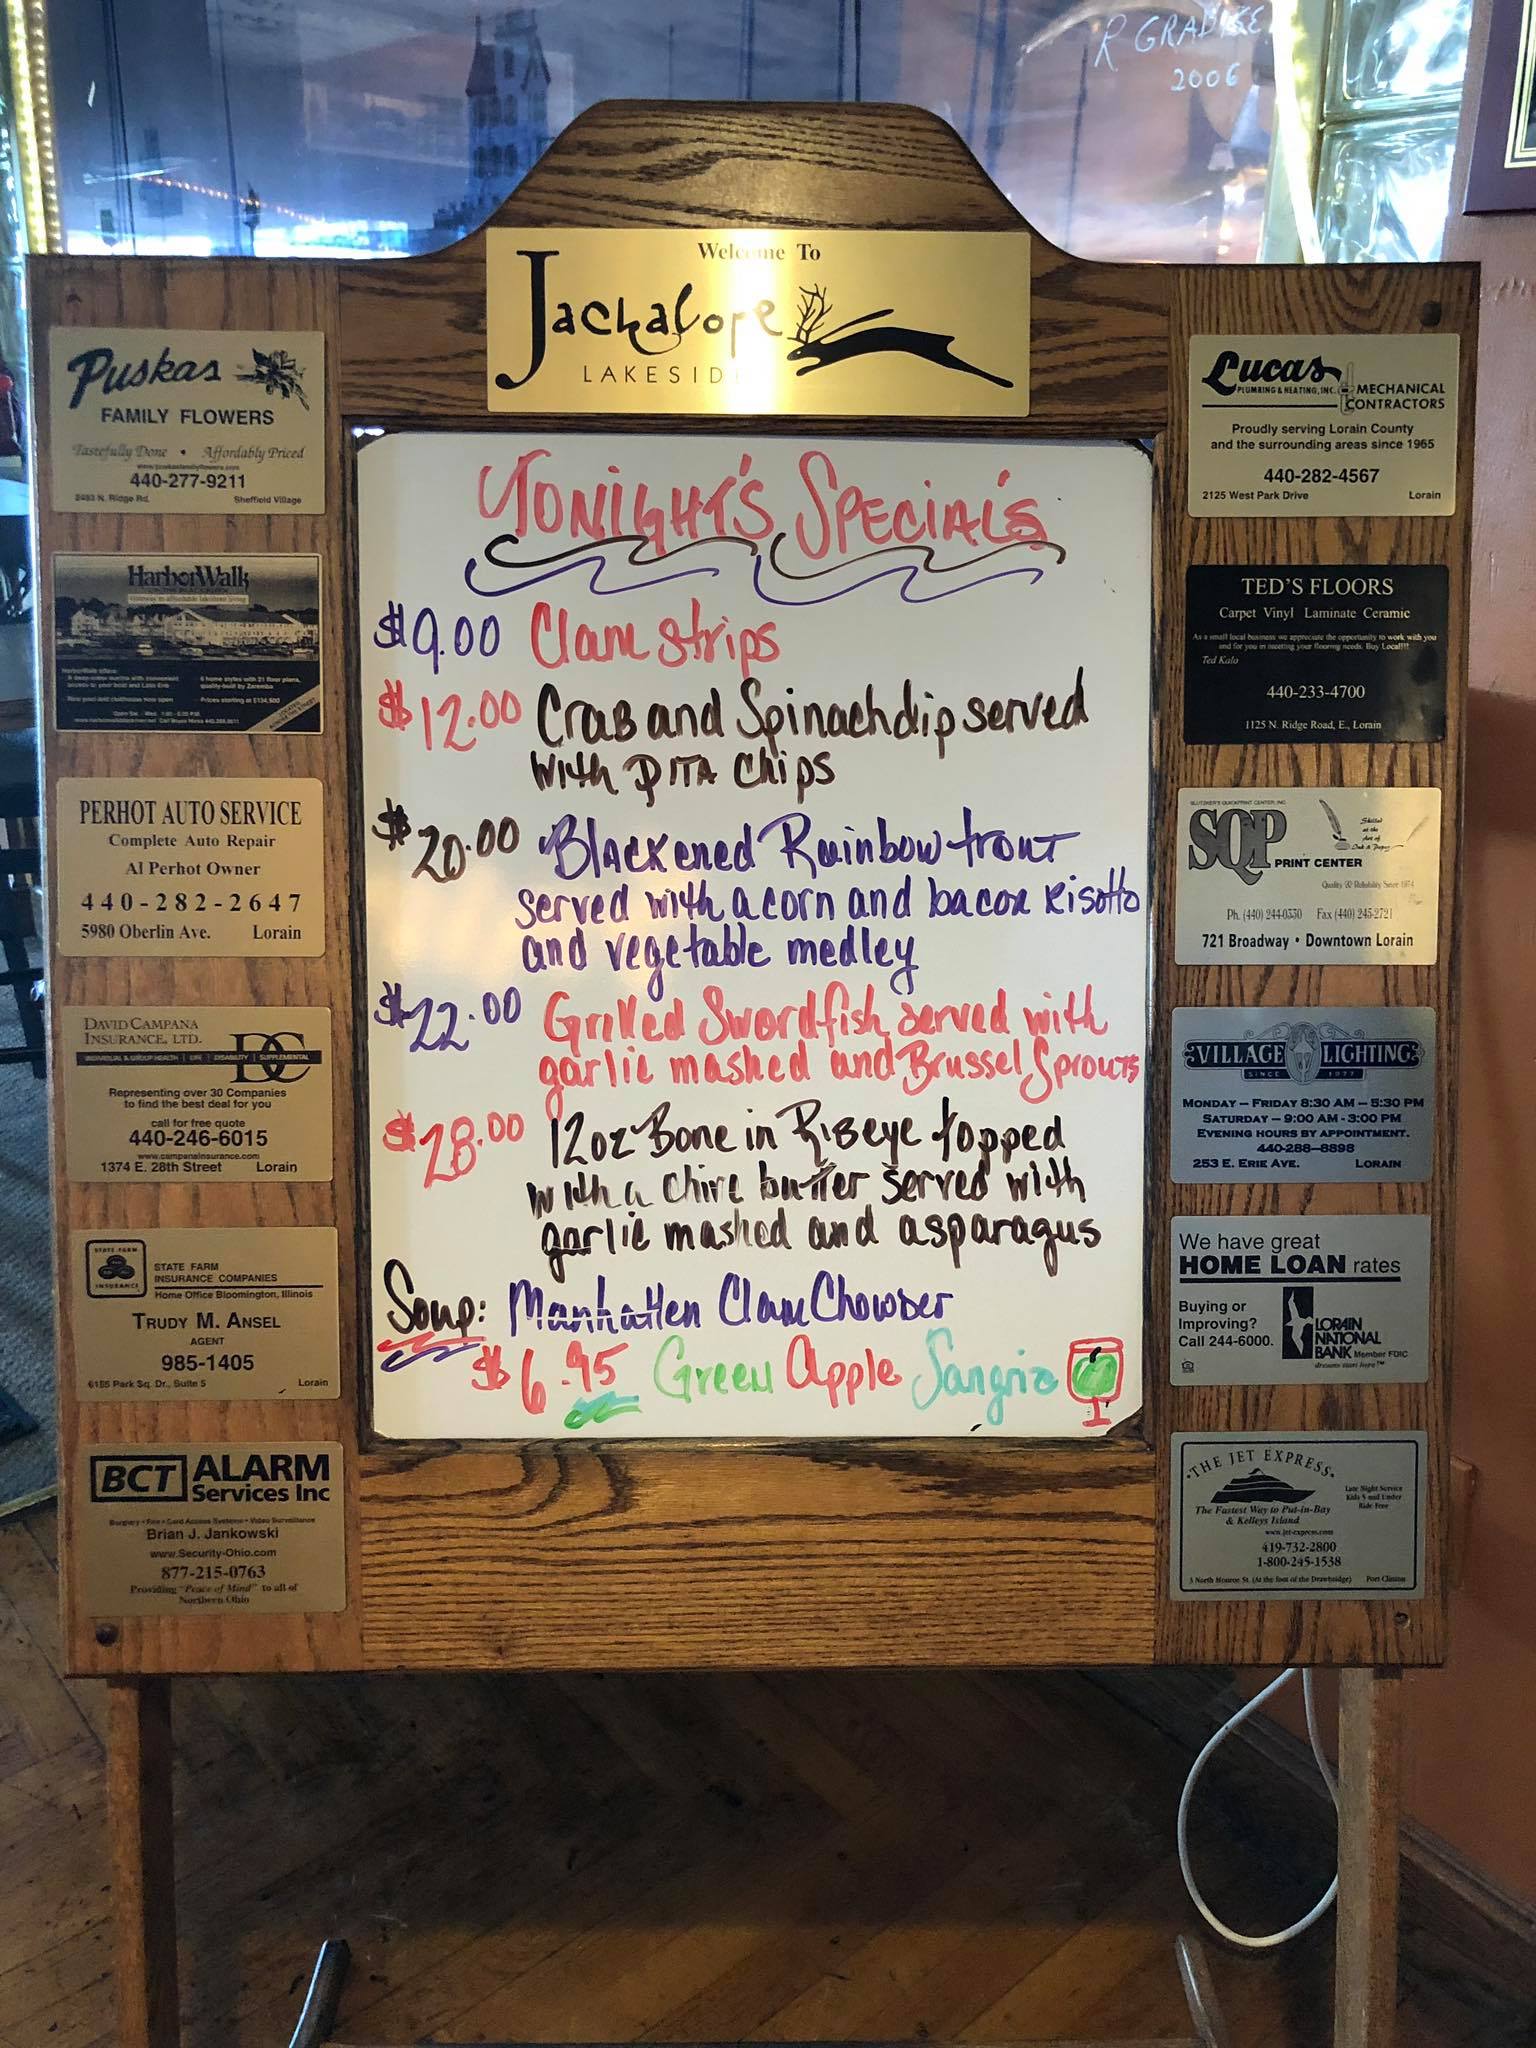 R GRADISE
2006
Welcome To
Jackalope
LAKESIDE
PUSKAS
FAMILY FLOWERS
Tastefully Done • Affordably Priced
www.puskasfamilyflowers.com
440-277-9211
2483 N. Ridge Rd. Sheffield Village
HarborWalk
HarborWalk offers:
6 home styles with 21 floor plans,
quality-built by Zaremba
Prices starting at $134,500
PERHOT AUTO SERVICE
Complete Auto Repair
Al Perhot Owner
440-282-2647
5980 Oberlin Ave. Lorain
DAVID CAMPANA
INSURANCE, LTD.
DC
INDIVIDUAL & GROUP HEALTH | LIFE | DISABILITY | SUPPLEMENTAL
Representing over 30 Companies
to find the best deal for you
call for free quote
440-246-6015
www.campanainsurance.com
1374 E. 28th Street Lorain
STATE FARM
INSURANCE
STATE FARM
INSURANCE COMPANIES
Home Office Bloomington, Illinois
TRUDY M. ANSEL
AGENT
985-1405
6155 Park Sq. Dr., Suite 5 Lorain
BCT ALARM
Services Inc
Burglary • Fire • Card Access Systems • Video Surveillance
Brian J. Jankowski
www.Security-Ohio.com
877-215-0763
Providing "Peace of Mind" to all of
Northern Ohio
TONIGHT'S SPECIAL'S
$9.00 Clam strips
$12.00 Crab and Spinach dip served
with PITA chips
$20.00 Blackened Rainbow trout
served with acorn and bacon Risotto
and vegetable medley
$22.00 Grilled Swordfish served with
garlic mashed and Brussel Sprouts
$28.00 12oz Bone in Ribeye topped
with a chive butter served with
garlic mashed and asparagus
Soup: Manhatten Clam Chowder
$6.95 Green Apple Sangria
Lucas
PLUMBING & HEATING, INC. MECHANICAL
CONTRACTORS
Proudly serving Lorain County
and the surrounding areas since 1965
440-282-4567
2125 West Park Drive Lorain
TED'S FLOORS
Carpet Vinyl Laminate Ceramic
As a small local business we appreciate the opportunity to work with you
and for you in meeting your flooring needs. Buy Local!!!
Ted Kalo
440-233-4700
1125 N. Ridge Road, E., Lorain
SLUTZKER'S QUICKPRINT CENTER, INC
SQP PRINT CENTER
Skilled
at the
Art of
Ink & Paper
Quality & Reliability Since 1974
Ph. (440) 244-0330 Fax (440) 245-2721
721 Broadway • Downtown Lorain
VILLAGE LIGHTING
SINCE 1977
MONDAY – FRIDAY 8:30 AM – 5:30 PM
SATURDAY – 9:00 AM - 3:00 PM
EVENING HOURS BY APPOINTMENT.
440-288-8898
253 E. ERIE AVE. LORAIN
We have great
HOME LOAN rates
Buying or
Improving?
Call 244-6000.
LORAIN
NATIONAL
BANK Member FDIC
dreams start here™
THE JET EXPRESS
Late Night Service
Kids 5 and Under
Ride Free
The Fastest Way to Put-in-Bay
& Kelleys Island
www.jet-express.com
419-732-2800
1-800-245-1538
3 North Monroe St. (At the foot of the Drawbridge) Port Clinton